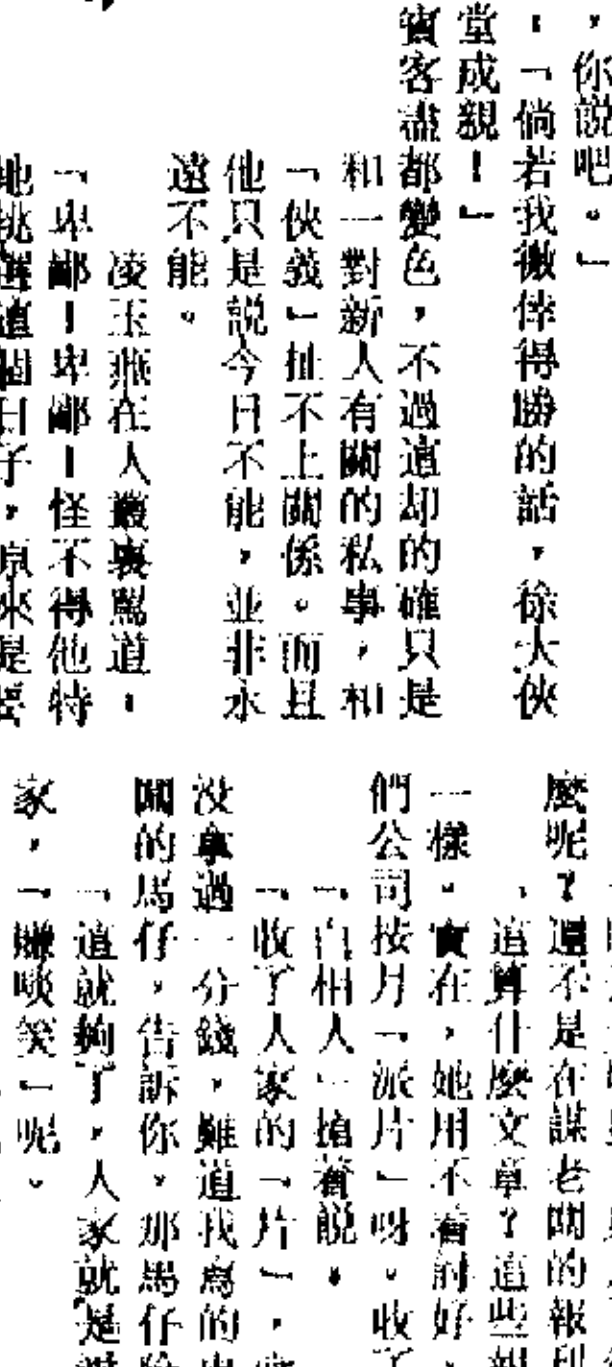 ，你説吧。」
：「倘若我徼倖得勝的話，徐大俠
堂成親！」
賓客盡都變色，不過這却的確只是
和一對新人有關的私事，和
「俠義」扯不上關係。而且
他只是説今日不能，並非永
遠不能。
凌玉燕在人叢裏駡道：
「卑鄙！卑鄙！怪不得他特
地挑選這個日子，原來是要
麼呢？還不是在謀老闆的報
這算什麼文章？這些報
一樣。實在，她用不着討好
們公司按月「派片」呀。收了
「白相人」搶着説。
「收了人家的「片」，
没拿過一分錢，難道我寫的
闆的馬仔，告訴你，那馬仔
「這就夠了，人家就是
家，「賺啖笑」呢。